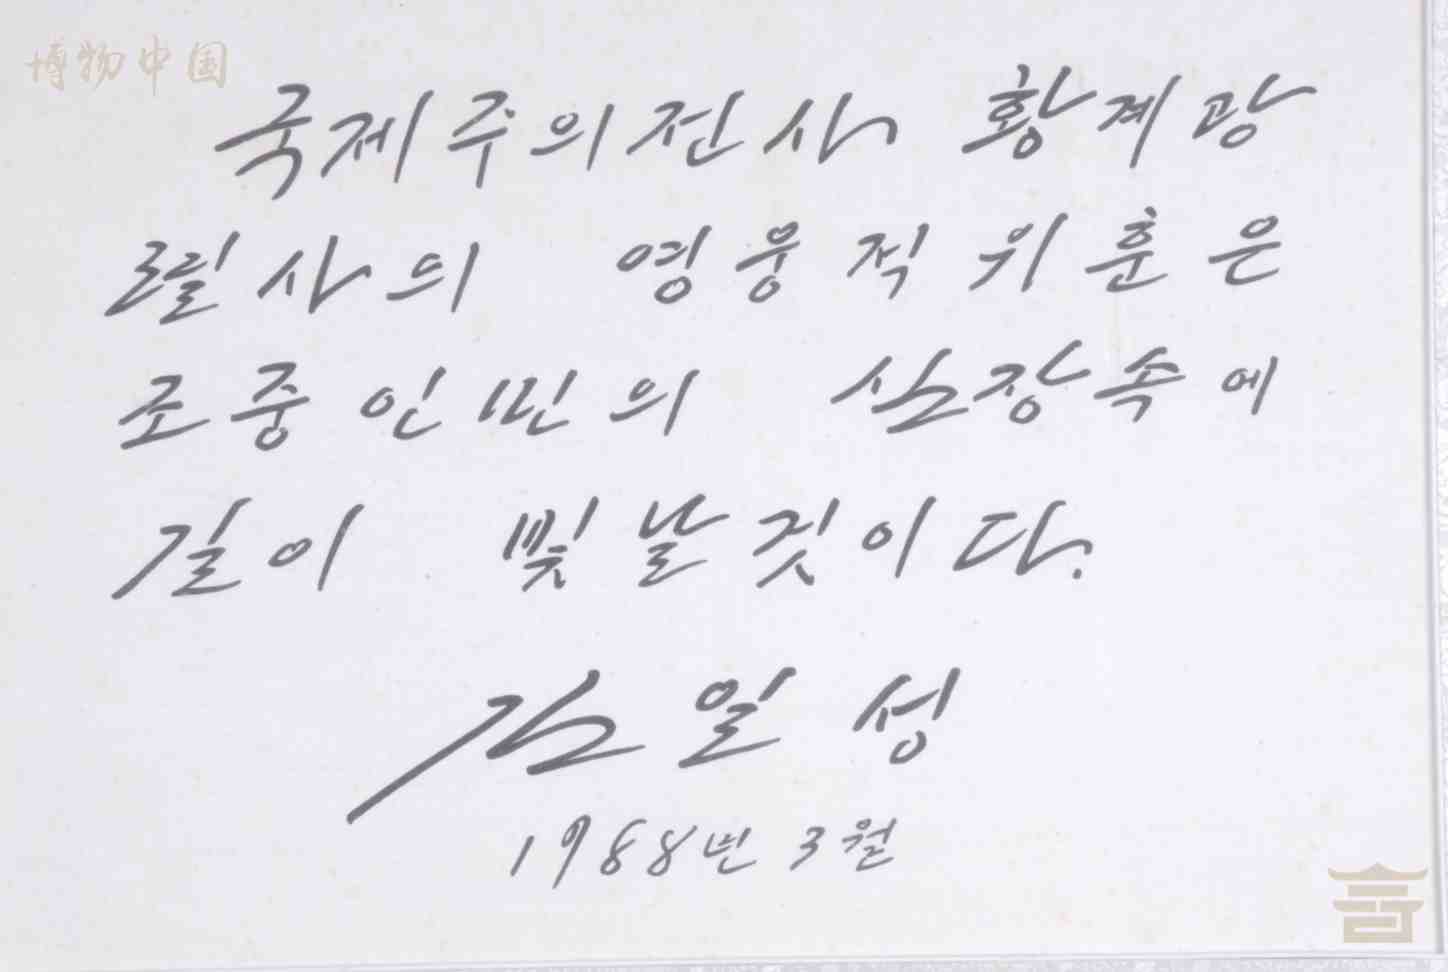 博物中国
국제주의전사 황계광
렬사의 영웅적위훈은
조중인민의 심장속에
길이 빛날것이다.
김일성
1988년 3월